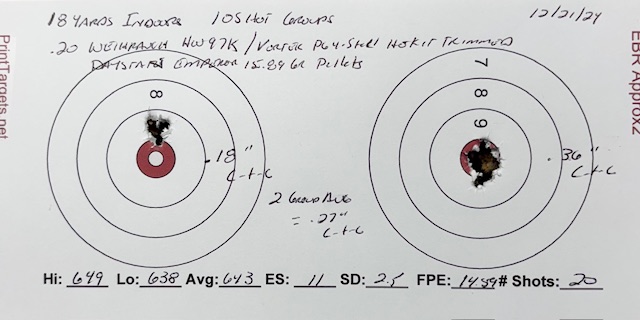 18 YARDS INDOORS 10 SHOT GROUPS 12/21/24
.20 WEIHRAUCH HW97K / VORTEK PG4-STEEL HO KIT TRIMMED
DAYSTATE EMPEROR 15.89 GR PELLETS
PrintTargets.net
EBR Approx2
8
7
8
9
.18"
C-t-C
.36"
C-t-C
2 GROUP AVG
= .27"
C-t-C
Hi: 649 Lo: 638 Avg: 643 ES: 11 SD: 2.5 FPE: 14.59 # Shots: 20